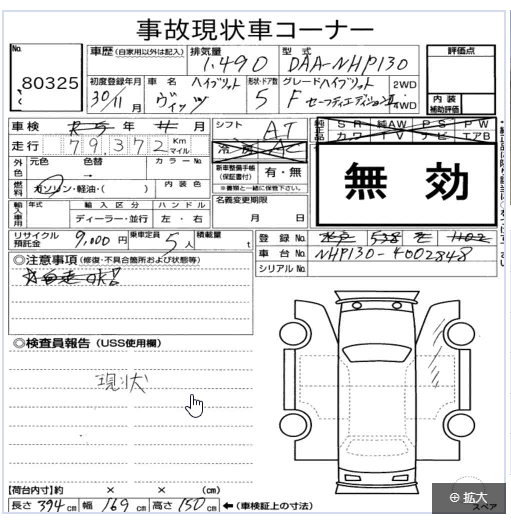 事故現状車コーナー
No. 80325
車歴 (自家用以外は記入) 排気量 1,490 型式 DAA-NHP130 評価点
初度登録年月 30/11 月 車名 ハイブリット ヴィッツ 形状・ドア数 5 グレード ハイブリット F セーフティエディションⅡ 2WD 4WD 内装補助評価
車検 年 月 シフト AT 純正品 SR 純AW PS PW
走行 79,372 Km マイル 冷房 AC カワ TV ナビ エアB
外色 元色 色替 → カラーNo. 新車整備手帳 (保証書付) 有・無
燃料 ガソリン・軽油・( ) 内装色 ※書類と一緒に保管下さい。
無効
輸入車用 年式 輸入区分 ハンドル 名義変更期限
ディーラー・並行 左・右 月 日
リサイクル預託金 9,000 円 乗車定員 5 人 積載量 t 登録No.
◎注意事項 (修復・不具合箇所および状態等) 車台No. NHP130-4002848
自走OK! シリアルNo.
◎検査員報告 (USS使用欄)
現状
【荷台内寸】約 × × (cm)
長さ 394 cm 幅 169 cm 高さ 150 cm ←(車検証上の寸法)
スペア
拡大